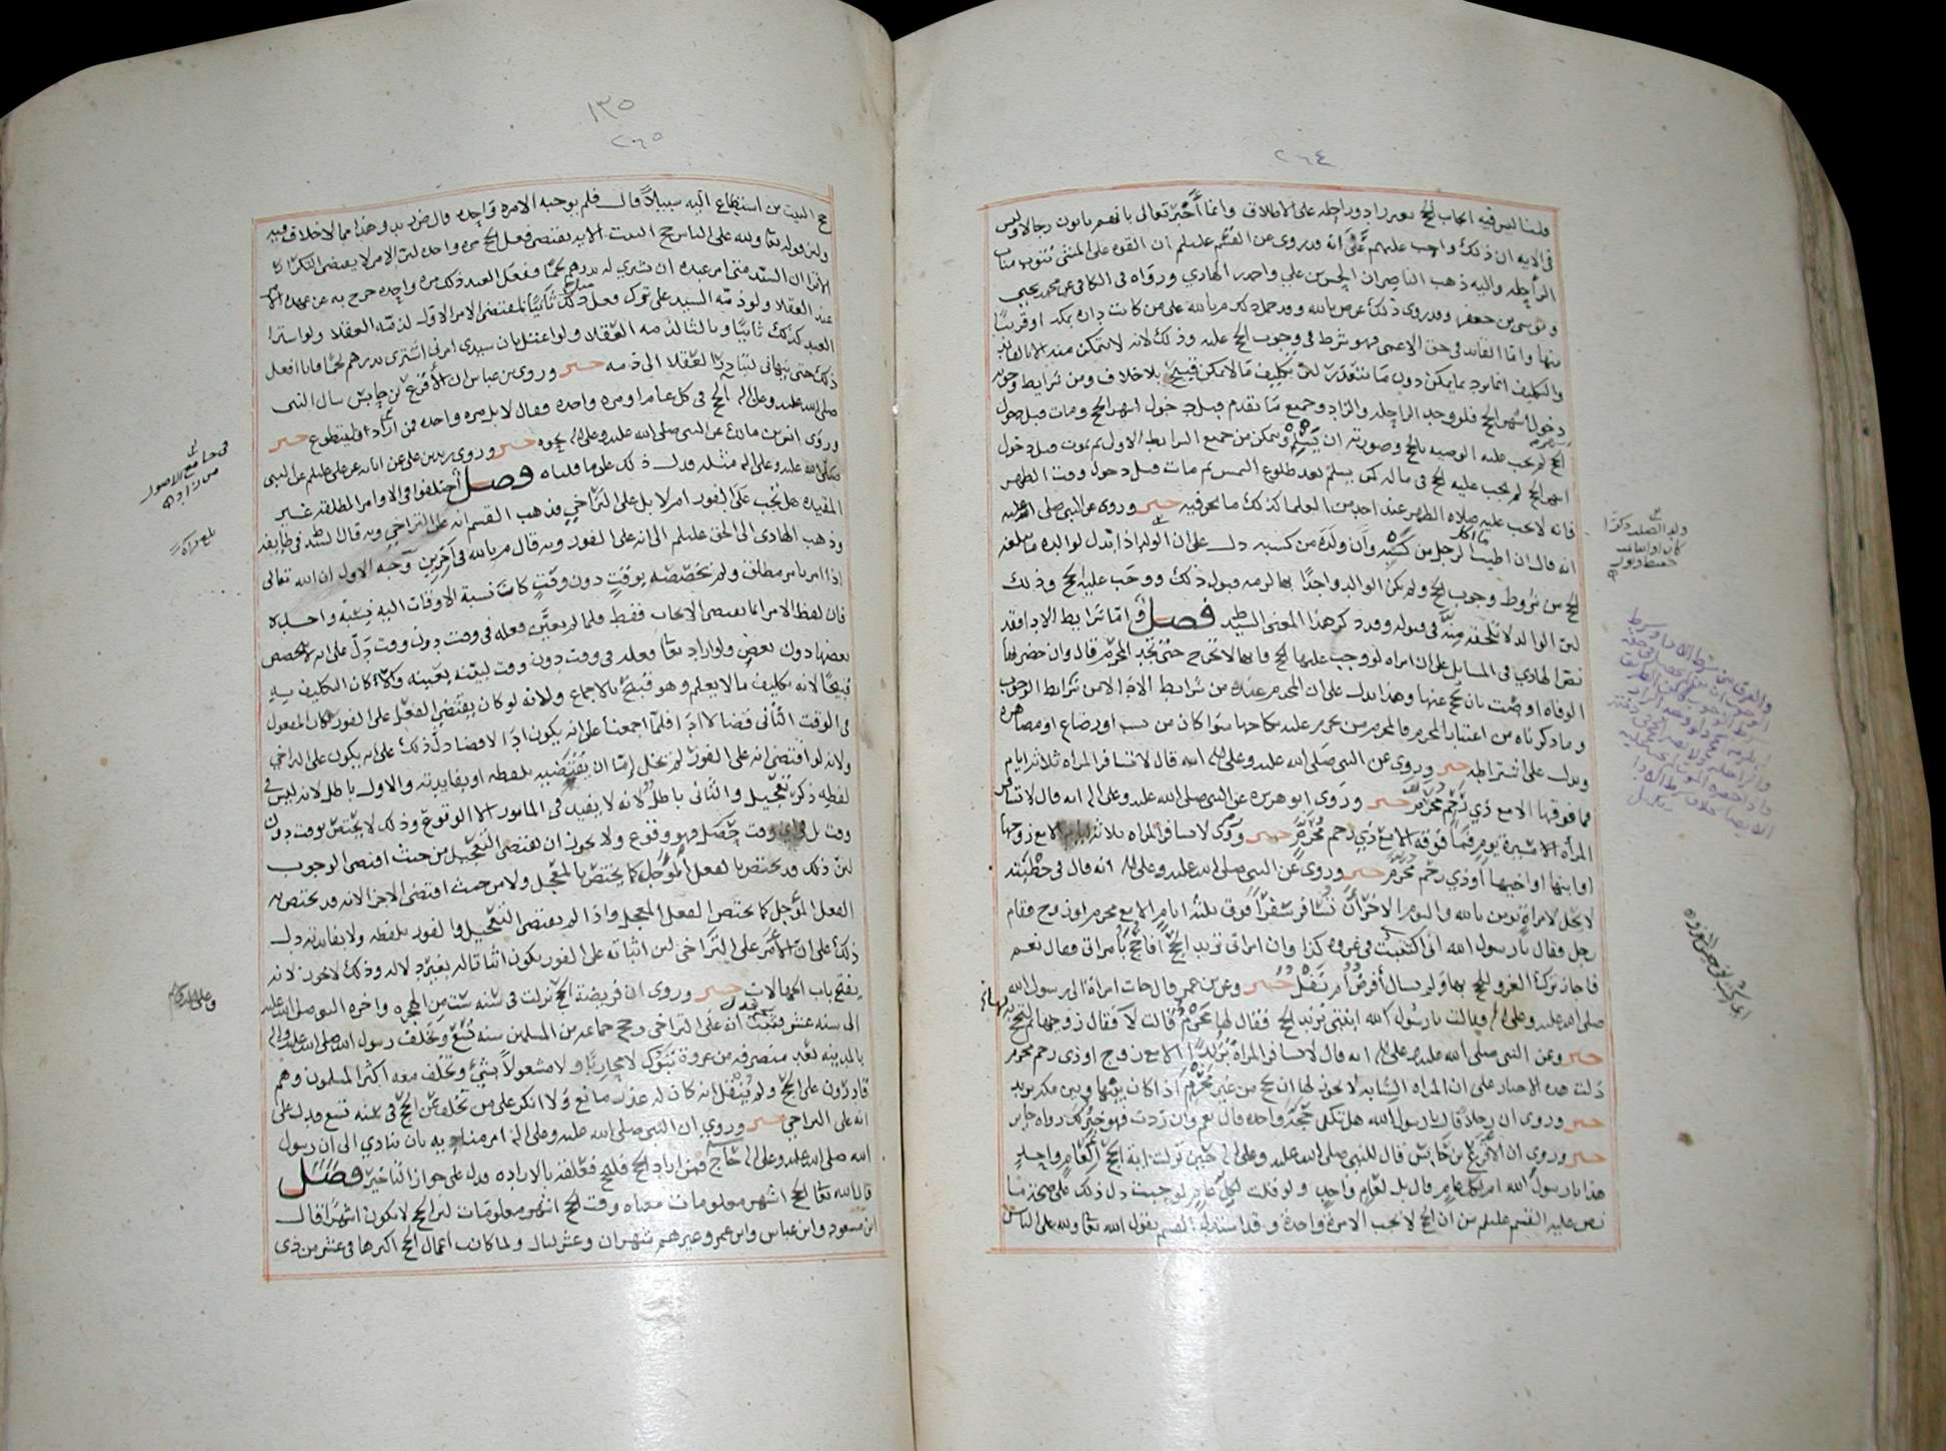 ٢٦٤
قلنا ليس فيه ايجاب الحج بغير زاد وراحله على الاطلاق وانما أخبر تعالى بانهم ياتون رجالا وليس
في الايه ان ذلك واجب عليهم على انه قد روى عن القسم عليلم ان القوه على المشي تنوب مناب
الراحله واليه ذهب الناصر ان الحسن بن علي واحمد بن الهادي ورواه في الكافي عن محمد بن يحيى
وموسى بن جعفر وقد روى ذلك عن ص بالله وقد حمل ذلك م بالله على من كانت داره بمكه او قريبًا
منها واما القايد في حق الاعمى فهو شرط في وجوب الحج عليه وذلك لانه لا يتمكن منه الا بالقايد
والتكليف انما يرد بما يمكن دون ما يتعذر لان تكليف ما لا يمكن قبيح بلا خلاف ومن شرايط وجوبه
دخول اشهر الحج فلو وجد الراحله والزاد وجميع ما تقدم قبل دخول اشهر الحج ومات قبل دخول
اشهر الحج لم يجب عليه الوصيه بالحج وصورته ان يسلم ويتمكن من جميع الشرايط الاول ثم يموت قبل دخول
اشهر الحج لم يجب عليه الحج في ماله كمن يسلم بعد طلوع الشمس ثم مات قبل دخول وقت الظهر
فانه لا يجب عليه صلاه الظهر عند احد من العلما كذلك ما نحن فيه خبر وروى عن النبي صلى الله عليه
انه قال ان اطيب ما اكل الرجل من كسبه وأن ولده من كسبه دل على ان الولد اذا بذل لوالده ما يبلغه
الحج من شروط وجوب الحج ولم يكن الوالد واجدًا بها لزمه قبول ذلك ووجب عليه الحج وذلك
لان الوالد لا تلحقه منة في قبوله وقد ذكر هذا المعنى السيد ط فصل واما شرايط الادا فقد
نص الهادي في المسايل على ان امراه لو وجب عليها الحج فانها لا تخرج حتى تجد المحرم قال وان حضرتها
الوفاه اوصت بان يحج عنها وهذا يدل على ان المحرم عنده من شرايط الادا لا من شرايط الوجوب
وما ذكرناه من اعتبار المحرم فالمحرم من يحرم عليه نكاحها سوا كان من نسب او رضاع او مصاهره
ويدل على اشتراطه خبر وروى عن النبي صلى الله عليه وعلى اله انه قال لا تسافر المراه ثلاثه ايام
فما فوقها الا مع ذي رحم محرم خبر وروى ابو هريره عن النبي صلى الله عليه وعلى اله انه قال لا تسافر
المرأه مسيرة يوم فما فوقه الا مع ذي رحم محرم خبر وروى لا تسافر المراه ثلاثه ايام الا مع زوجها
او ابنها او اخيها او ذي رحم محرم خبر وروى عن النبي صلى الله عليه وعلى اله انه قال في خطبته
لا يحل لامراة تومن بالله واليوم الاخر أن تسافر سفرا فوق ثلثه ايام الا مع محرم او زوج فقام
رجل فقال يا رسول الله اني اكتتبت في غزوه كذا وان امراتي تريد الحج أفاحج بامراتي فقال نعم
فاجاز ترك الغزو للحج بها ولم يسال أفرض أم نفل خبر وعن بن عمر قال جات امرأة الى رسول الله
صلى الله عليه وعلى اله وقالت يا رسول الله ابنتي تريد الحج فقال لها محرم قالت لا فقال زوجيها ثم لتحج
خبر وعن النبي صلى الله عليه وعلى اله انه قال لا تسافر المرأة بريدًا الا مع زوج او ذي رحم محرم
دلت هذه الاخبار على ان المراه الشابه لا يجوز لها ان تحج من غير محرم اذا كان بينها وبين مكه بريد
خبر وروى ان رجلا قال يا رسول الله هل تكفي حجة واحده قال نعم وان زدت فهو خير لك رواه جابر
خبر وروى ان الاقرع بن حابس قال للنبي صلى الله عليه وعلى اله حين نزلت اية الحج ألعام واحد
هذا يا رسول الله ام لكل عام قال بل لعام واحد ولو قلت لكل عام لوجبت دل ذلك على صحة ما
نص عليه القسم عليلم من ان الحج لا يجب الا مرة واحدة وقد استدل القسم بقول الله تعا ولله على الناس
١٣٥
٢٦٥
حج البيت من استطاع اليه سبيلا قال فلم يوجبه الا مره واحده قال ض زيد وهذا مما لا خلاف فيه
ولان قوله تعا ولله على الناس حج البيت الايه يقتضي فعل الحج مره واحده لان الامر لا يقتضي التكرار
الا ترا ان السيد متى امر عبده ان يشتري له بدرهم لحمًا ففعل العبد ذلك مره واحده خرج به عن عهده الامر
عند العقلا ولو ذمه السيد على ترك فعل ذلك ثانيًا لمقتضى الامر الاول لذمه العقلا ولو استرا
العبد كذلك ثانيًا وبالثالث ذمه العقلا ولو اعتل بان سيدي امرني اشترى بدرهم لحمًا فانا افعل
ذلك حتى ينهاني لتبادر العقلا الى ذمه خبر وروى بن عباس ان الأقرع بن حابس سال النبي
صلى الله عليه وعلى اله الحج في كل عام او مره واحده فقال لا بل مره واحده فمن أراد فليتطوع خبر
وروى انس بن مالك عن النبي صلى الله عليه وعلى اله نحوه خبر وروى زيد بن علي عن ابايه عن علي عليلم عن النبي
صلى الله عليه وعلى اله مثله فدل ذلك على ما قلناه فصل أختلفوا في الاوامر المطلقه غير
المقيده هل تجب على الفور ام لا بل على التراخي فذهب القسم انه على التراخي وبه قال السيد ط في طايفه
وذهب الهادي الى الحق عليلم الى انه على الفور وبه قال م بالله في آخرين وجه الاول ان الله تعالى
اذا امر بامر مطلق ولم يخصصه بوقت دون وقت كانت نسبة الاوقات اليه نسبة واحده
فان لفظ الامر انما يقتضي الايجاب فقط فلما لم يعين فعله في وقت دون وقت دل على انه لا يخصص
بعضها دون بعض ولو اراد تعا فعله في وقت دون وقت لبينه بعينه وكان التكليف به
قبيحًا لانه تكليف ما لا يعلم وهو قبيح بالاجماع ولانه لو كان يقتضي الفعل على الفور لكان المفعول
في الوقت الثاني قضا لا ادا فلما اجمعنا على انه يكون ادًا لا قضا دل ذلك على انه يكون على التراخي
ولانه لو اقتضى انه على الفور لم يخل إما ان يقتضيه بلفظه او بفايدته والاول باطل لانه ليس في
لفظه ذكر تعجيل والثاني باطل لانه لا يفيد في المامور الا الوقوع وذلك لا يختص بوقت دون
وقت بل في اي وقت حصل فهو وقوع ولا يجوز ان يقتضي التعجيل من حيث اقتضى الوجوب
لان ذلك قد يختص بالفعل المؤجل كما يختص بالمعجل ولا من حيث اقتضى الاجزا لانه قد يختص به
الفعل المؤجل كما يختص الفعل المعجل واذا لم يقتضي التعجيل والفور بلفظه ولا بفايدته دل
ذلك على ان الأمر على التراخي لان اثباته على الفور يكون اثباتا له بغير دلاله وذلك لا يجوز لانه
يفتح باب الجهالات خبر وروى ان فريضة الحج نزلت في سنه ست من الهجره واخره النبي صلى الله عليه
الى سنه عشر فثبت انه على التراخي وحج جماعه من المسلمين سنه تسع وتخلف رسول الله صلى الله عليه واله
بالمدينه بعد منصرفه من غزوة تبوك لا محاربًا ولا مشغولاً بشيء وتخلف معه اكثر المسلمون وهم
قادرون على الحج ولم ينقل انه كان له عذر مانع ولا انكر على من تخلف عن الحج في سنه تسع فدل على
انه على التراخي خبر وروى ان النبي صلى الله عليه وعلى اله امر مناديه بان ينادي الى ان رسول
الله صلى الله عليه وعلى اله حاج فمن اراد الحج فليحج فعلقه بالاراده فدل على جواز التاخير فصل
قال الله تعا الحج اشهر معلومات معناه وقت الحج اشهر معلومات لان الحج لا يكون اشهرًا قال
ابن مسعود وابن عباس وابن عمر وغيرهم شهران وعشر ليال ولما كانت اعمال الحج اكثرها في عشر من ذي
في جامع الاصول
من زاد
بلغ قراة